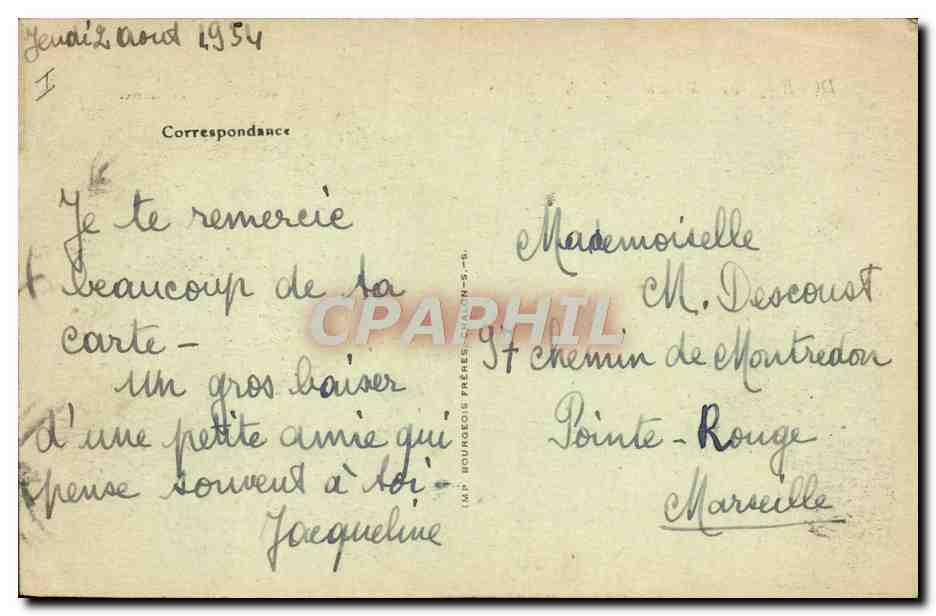 Jeudi 2 Aout 1954
I
Correspondance
Je te remercie
beaucoup de ta
carte -
un gros baiser
d'une petite amie qui
pense souvent à toi -
Jacqueline
IMP. BOURGEOIS FRÈRES, CHALON-S.-S.
CPAPHIL
Mademoiselle
M. Descoust
97 chemin de Montredon
Pointe - Rouge
Marseille